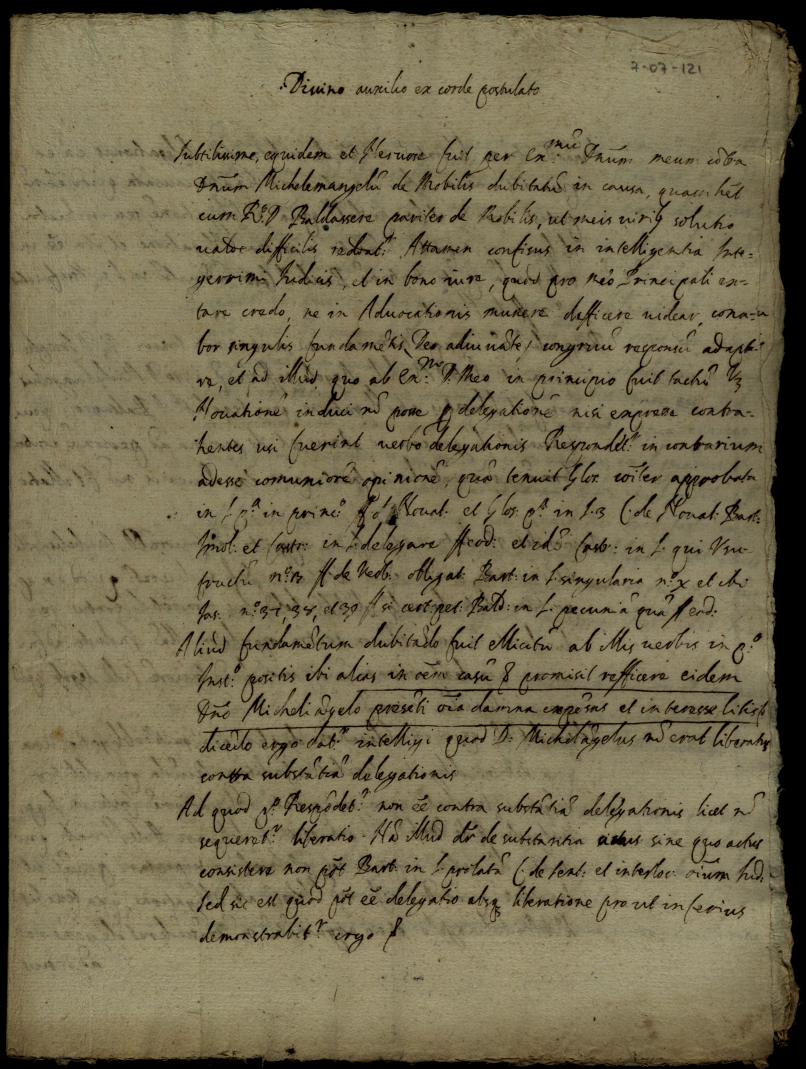 7-07-121
Divino auxilio ex corde postulato
Subtilissime, equidem et fuit per Ex.mũ Dnum meum
Dnum Michelemangelũ de Nobilis dubitatũ in causa, quam hẽt
cum R.º D Baldassere pariter de Nobilis, ut meis viribȝ solutio
difficilis Attamen confisus in intelligentia Inte-
gerrimi Iudicis, et in bono iure, quod pro meo Principali ex-
tare credo, ne in Advocationis munere defficere videar, cona-
bor singulis fundamẽtis, Deo adiuvãte, congruũ responsũ adapta-
re, et ad illud, quo ab Ex.mo D. meo in principio fuit tactũ
Novationẽ induci nõ posse ꝑ delegationẽ nisi expresse contra-
hentes usi fuerint verbo delegationis Respondet.r in contrarium
adesse comuniorẽ opinionẽ, quã tenuit Glos. cõiter approbata
in l. p.ª in princ.º ff d Novat: et Glos: p.ª in l. 3 C. de Novat: Bart:
Imol: et Castr: in l. delegare ff eod: et idẽ Castr: in l. qui Usu-
fructũ n.º ff de Verb: obligat: Bart: in l. singularia n.º x et ibi
Ias: n.º 37, 38, et 39 ff si cert: pet: Bald: in l. pecuniã quã ff eod:
Aliud fundamẽtum dubitãdo fuit ellicitũ ab illis verbis in p.º
Inst.º positis ibi alias in oẽm casũ & promisit refficere eidem
Dnõ Micheli ãgelo presẽti oĩa damna expẽsas et interesse litis &
dicẽdo ergo dat.r intelligi quod D: Michelãgelus nõ erat liberatus
contra substãtiã delegationis
Ad quod p.º Respõdet.r non eẽ contra substãtiã delegationis licet nõ
sequeret.r liberatio. Nã illud dr̃ de substantia actus sine quo actus
consistere non põt Bart: in l. prolatã C. de sent: et interloc: oĩum Iud:
sed sic est quod põt eẽ delegatio absqȝ liberatione pro ut inferius
demonstrabit.r ergo &